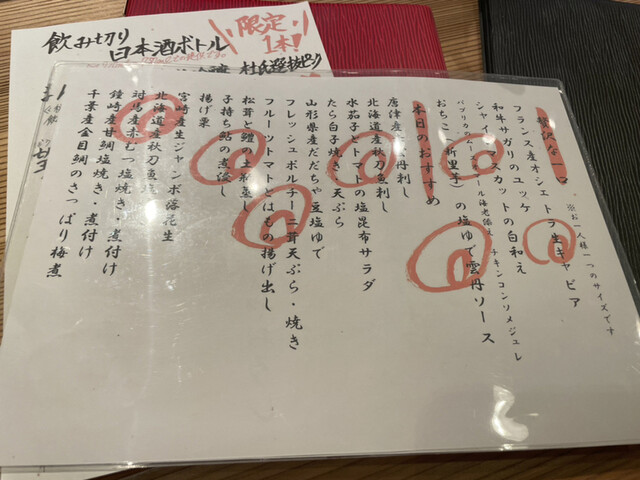 飲み切り
日本酒ボトル
限定
1本!
贅沢な一口
※お一人様一つのサイズです
フランス産オシェトラ生キャビア
和牛サガリのユッケ
シャインマスカットの白和え
チキンコンソメジュレ
おちこ(新里芋)の塩ゆで雲丹ソース
本日のおすすめ
唐津産 丹刺し
北海道産秋刀魚刺し
水茄子とトマトの塩昆布サラダ
たら白子焼き・天ぷら
山形県産だだちゃ豆塩ゆで
フレッシュポルチーニ茸天ぷら・焼き
フルーツトマトとはもの揚げ出し
松茸と鱧の土瓶蒸し
子持ち鮎の煮浸し
揚げ栗
宮崎産生ジャンボ落花生
北海道産秋刀魚塩
対馬産赤むつ塩焼き・煮付け
鐘崎産甘鯛塩焼き・煮付け
千葉産金目鯛のさっぱり梅煮